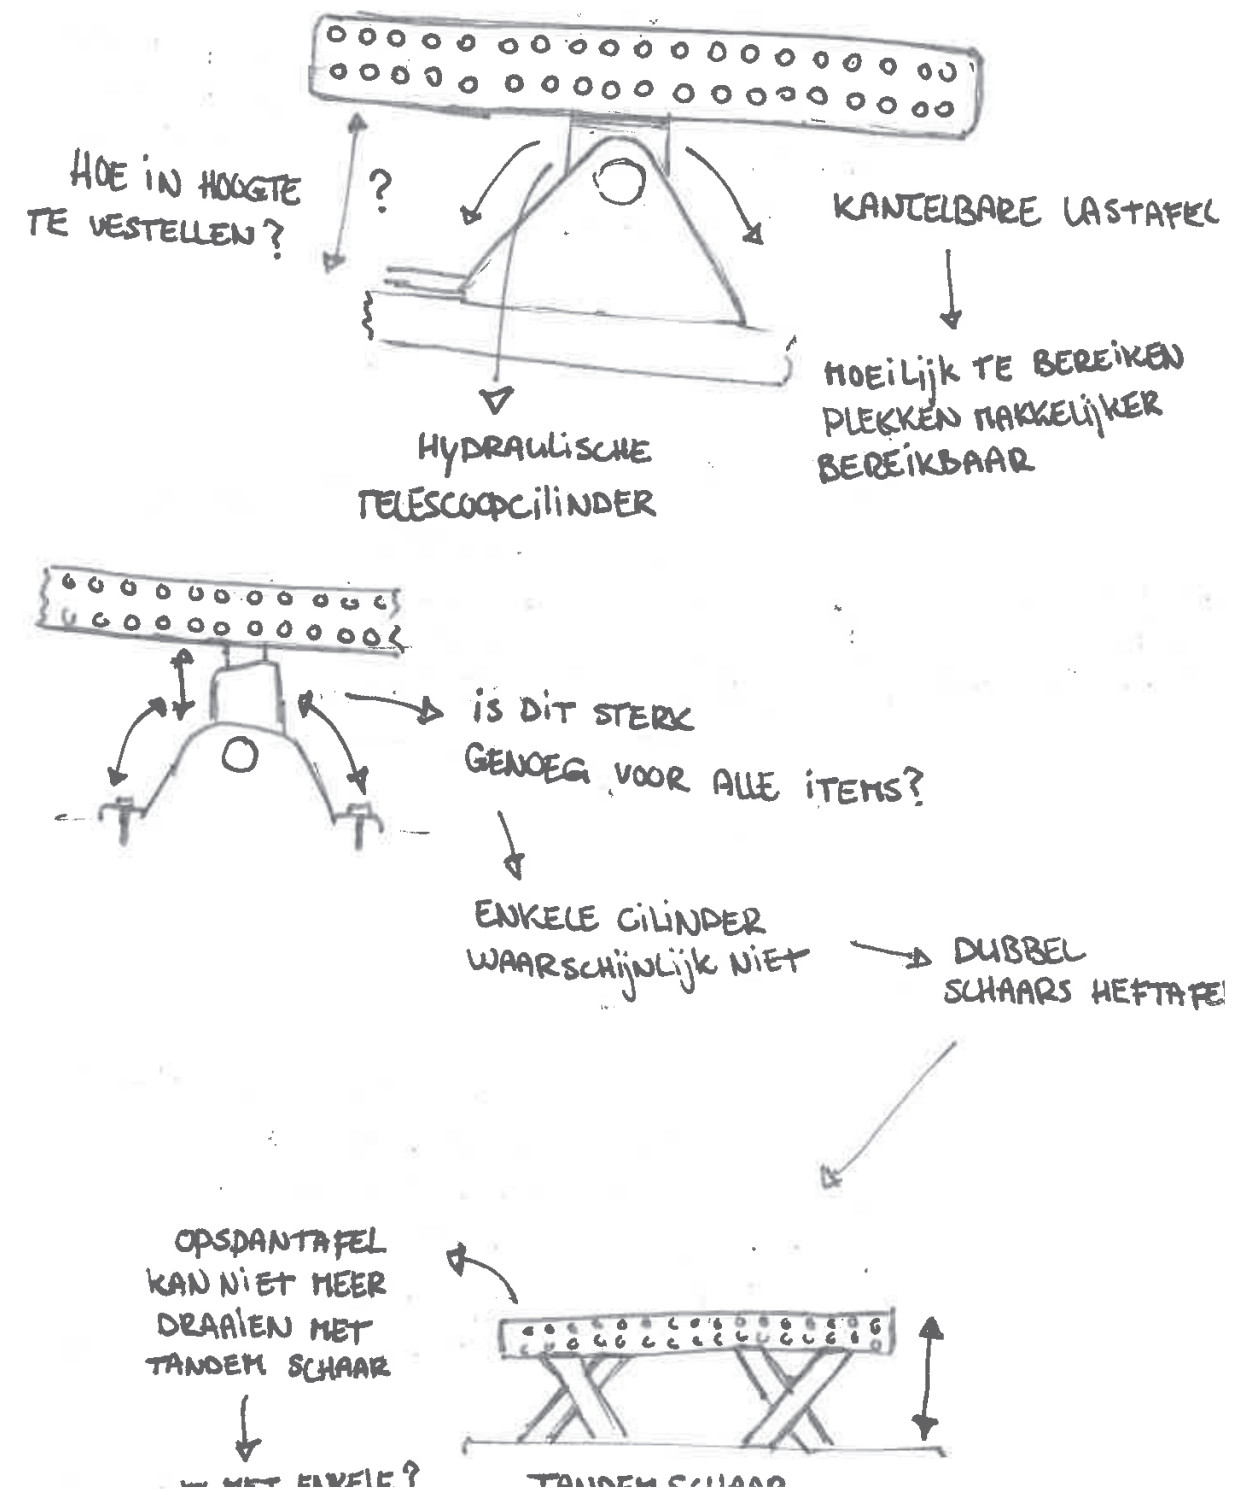 HOE IN HOOGTE
TE VESTELLEN?
?
KANTELBARE LASTAFEL
MOEILIJK TE BEREIKEN
PLEKKEN MAKKELIJKER
BEREIKBAAR
HYDRAULISCHE
TELESCOOPCILINDER
IS DIT STERK
GENOEG VOOR ALLE ITEMS?
ENKELE CILINDER
WAARSCHIJNLIJK NIET
DUBBEL
SCHAARS HEFTAFEL
OPSPANTAFEL
KAN NIET MEER
DRAAIEN MET
TANDEM SCHAAR
MET ENKELE?
TANDEM SCHAAR